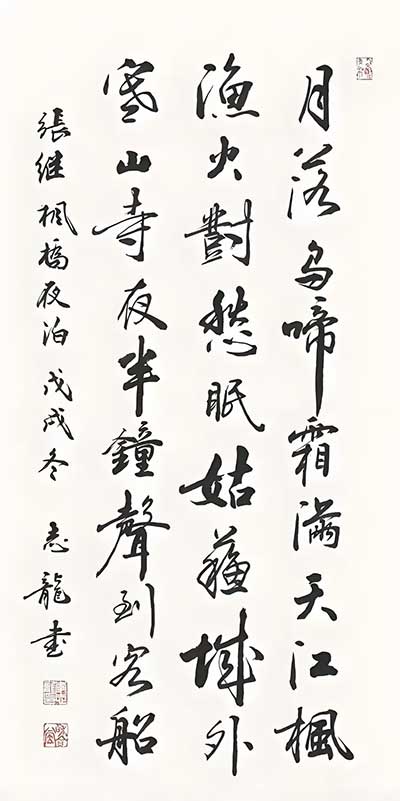 月落烏啼霜滿天江楓
漁火對愁眠姑蘇城外
寒山寺夜半鐘聲到客船
張继楓橋夜泊 戊戌冬 志龍书